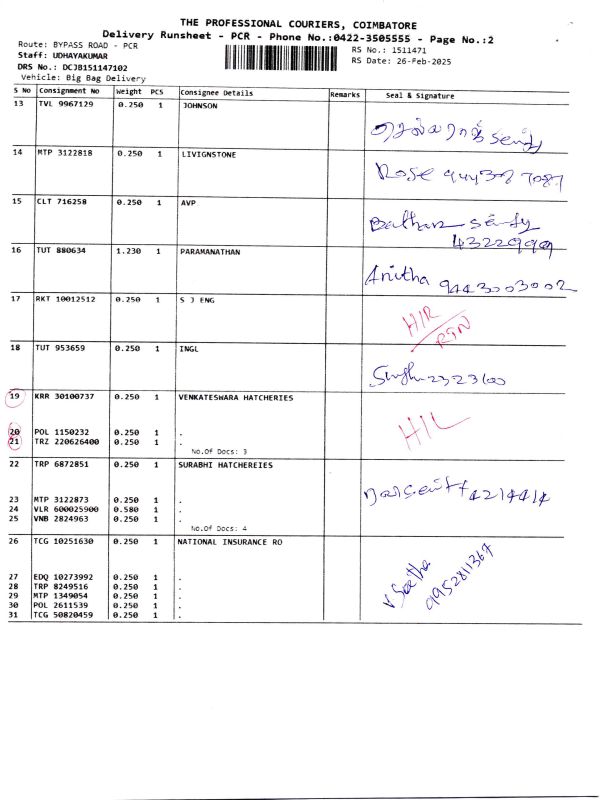 THE PROFESSIONAL COURIERS, COIMBATORE
Delivery Runsheet - PCR - Phone No.:0422-3505555 - Page No.:2
Route: BYPASS ROAD - PCR
RS No.: 1511471
Staff: UDHAYAKUMAR
RS Date: 26-Feb-2025
DRS No.: DCJB151147102
Vehicle: Big Bag Delivery
S No Consignment No Weight PCS Consignee Details Remarks Seal & Signature
13 TVL 9967129 0.250 1 JOHNSON
14 MTP 3122818 0.250 1 LIVIGNSTONE
Rose
15 CLT 716258 0.250 1 AVP
43229999
16 TUT 880634 1.230 1 PARAMANATHAN
Anitha 9443003002
17 RKT 10012512 0.250 1 S J ENG
18 TUT 953659 0.250 1 INGL
19 KRR 30100737 0.250 1 VENKATESWARA HATCHERIES
20 POL 1150232 0.250 1 .
21 TRZ 220626400 0.250 1 .
No.Of Docs: 3
22 TRP 6872851 0.250 1 SURABHI HATCHEREIES
4214414
23 MTP 3122873 0.250 1 .
24 VLR 600025900 0.580 1 .
25 VNB 2824963 0.250 1 .
No.Of Docs: 4
26 TCG 10251630 0.250 1 NATIONAL INSURANCE RO
9952811367
27 EDQ 10273992 0.250 1 .
28 TRP 8249516 0.250 1 .
29 MTP 1349054 0.250 1 .
30 POL 2611539 0.250 1 .
31 TCG 50820459 0.250 1 .